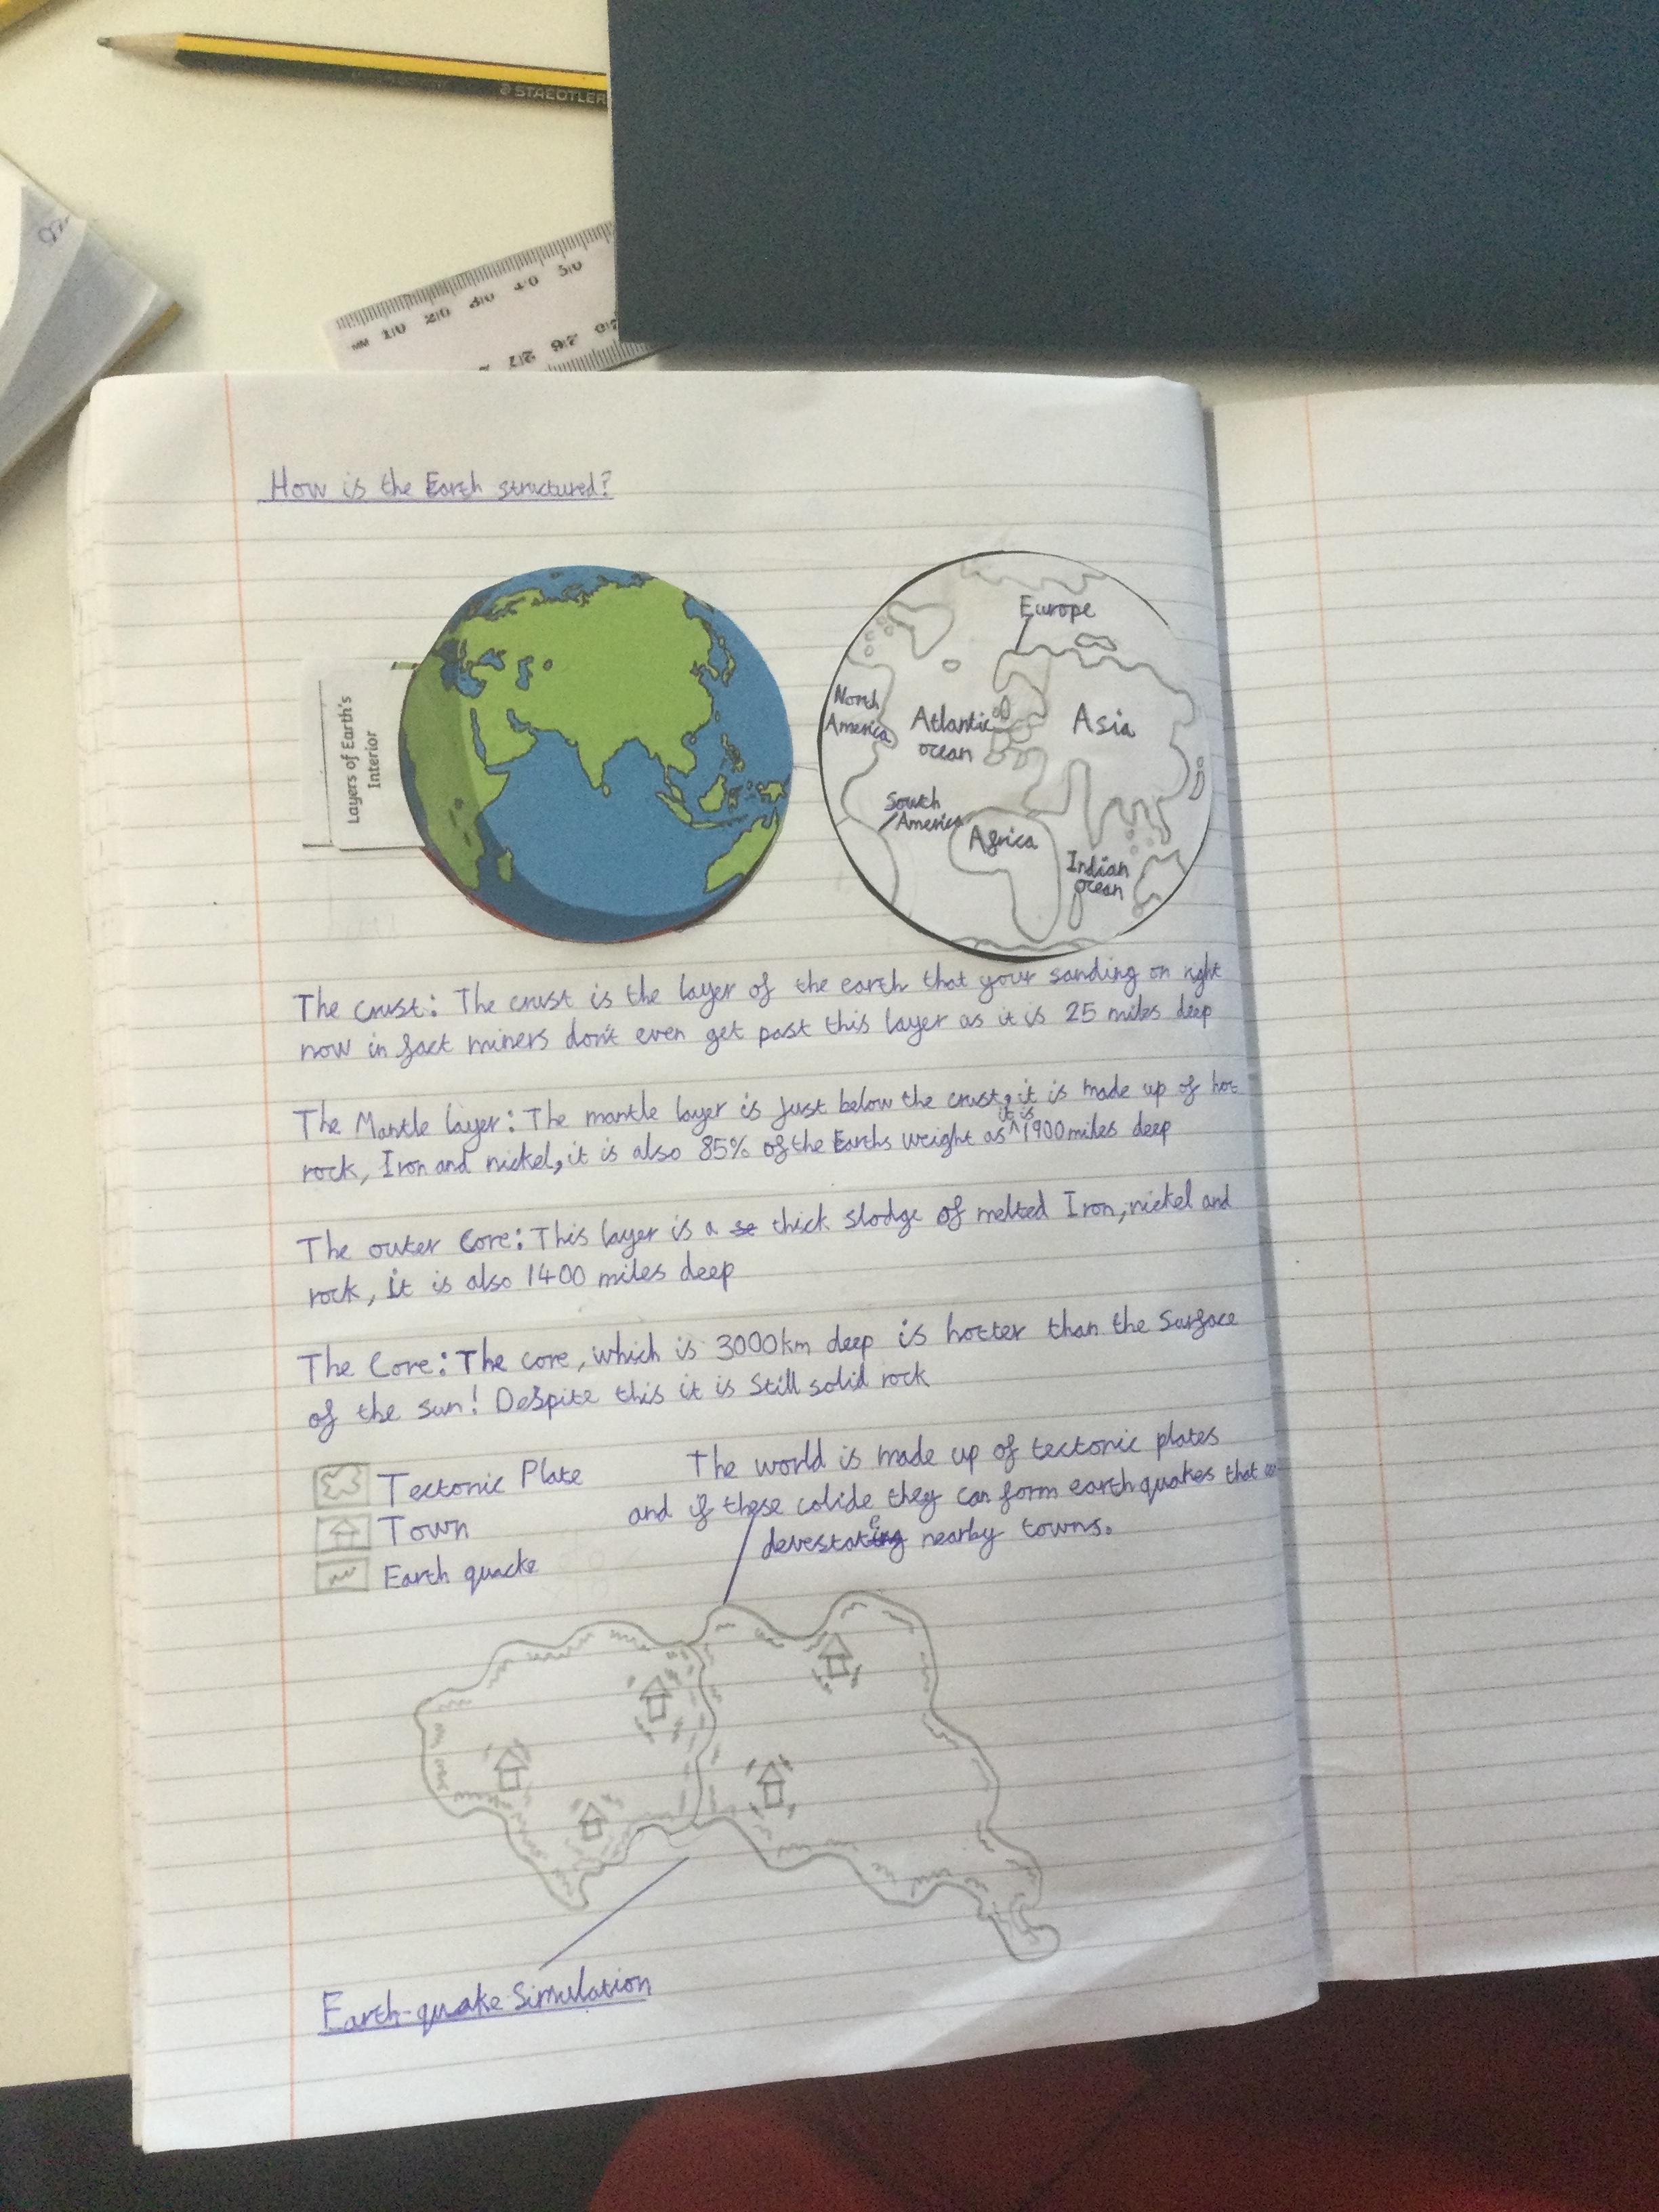 STAEDTLER
MM 10 20 30 40 50
How is the Earth structured?
Layers of Earth's
Interior
Europe
North
America
Atlantic
ocean
Asia
South
America
Africa
Indian
ocean
The crust: The crust is the layer of the earth that your sanding on right
now in fact miners don't even get past this layer as it is 25 miles deep
The Mantle layer: The mantle layer is just below the crust, it is made up of hot
rock, Iron and nickel, it is also 85% of the Earths weight as it is 1900 miles deep
The outer Core: This layer is a se thick slodge of melted Iron, nickel and
rock, it is also 1400 miles deep
The Core: The core, which is 3000km deep is hotter than the Surface
of the sun! Despite this it is Still solid rock
Tectonic Plate
Town
Earth quacke
The world is made up of tectonic plates
and if these colide they can form earthquakes that
devestate nearby towns.
Earth-quake Simulation